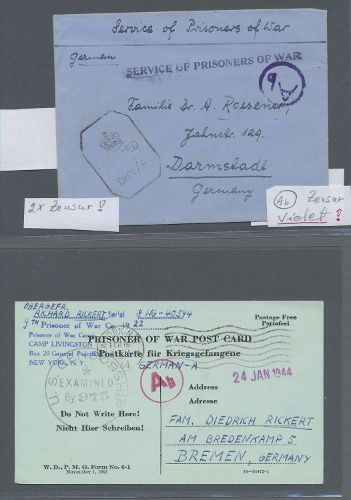 Service of Prisoners of War
German
SERVICE OF PRISONERS OF WAR
9
Familie Dr. H. Roesener,
Jahnstr. 129.
Darmstadt
Germany
2x Zensur!
Ab Zensur
violet!
OBERGEFR.
RICHARD RICKERT Serial 8 HG-42544
9TH Prisoner of War Co. 1922
Prisoner of War Camp
CAMP LIVINGSTON
Box 20 General Post
NEW YORK, N.Y.
Postage Free
Portofrei
PRISONER OF WAR POST CARD
Postkarte für Kriegsgefangene
GERMAN-A
U.S. CENSORSHIP
EXAMINED
By 975
Ab
24 JAN 1944
Address
Address
Do Not Write Here!
Nicht Hier Schreiben!
FAM. DIEDRICH RICKERT
AM BREDENKAMP 5
BREMEN, GERMANY
W. D., P. M. G. Form No. 6-1
November 1, 1942